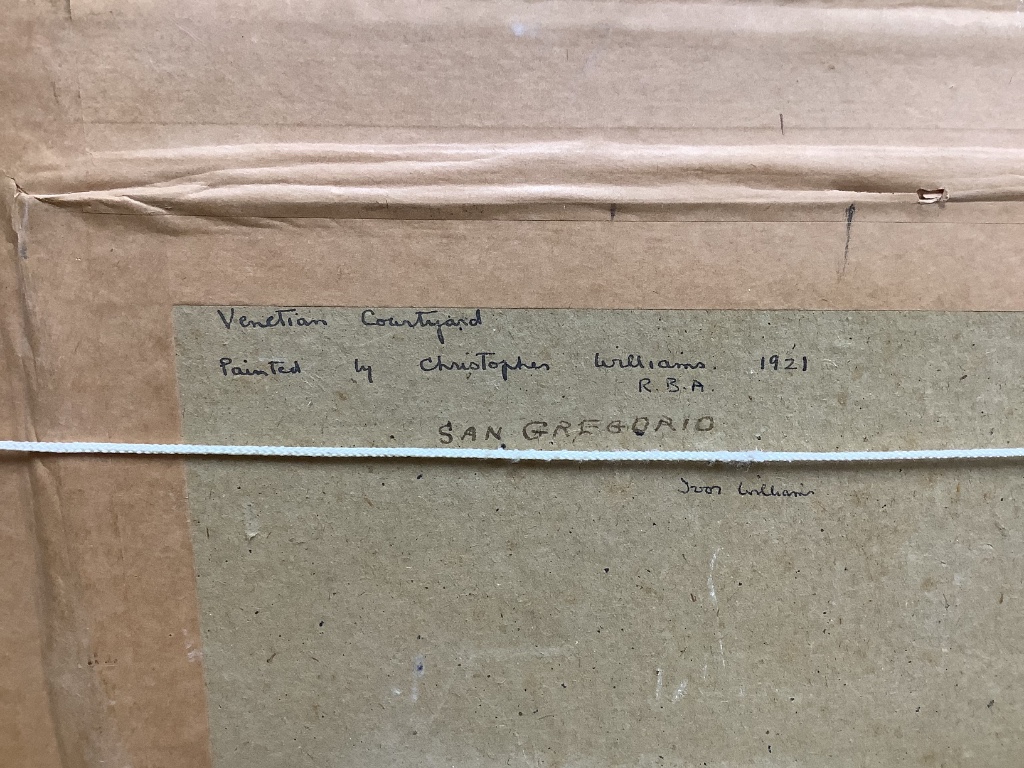 Venetian Courtyard
Painted by Christopher Williams. 1921
R.B.A.
SAN GREGORIO
Ivor Williams